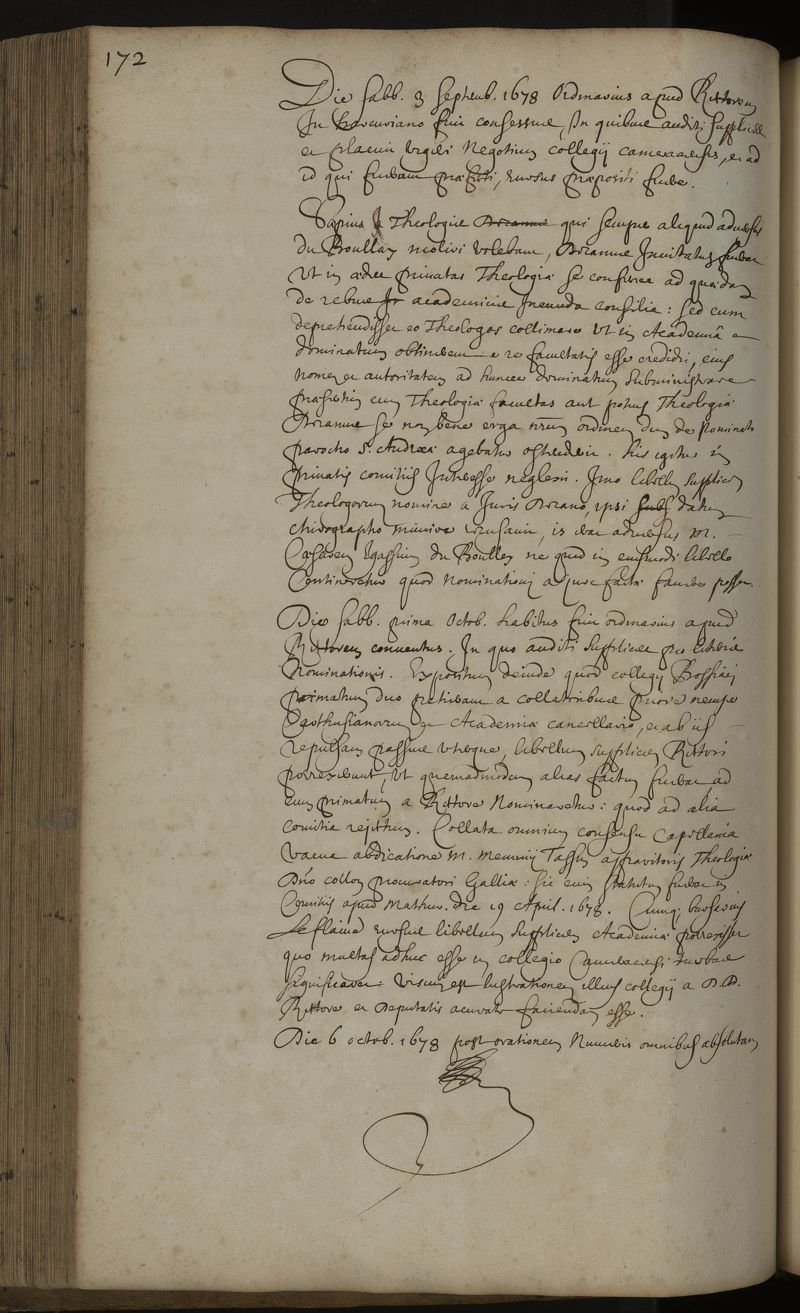 172
Die sabb. 3 Septemb. 1678 Ordinarius apud Rectorem
In Harcuriano fuit consessus, In quibus auditi supplices
et placuit urgeri Negotium collegij cameracensis, et ad
id qui fuerant præfecti, rursus præpositi fuere.
Sæpius Theologiæ Decanus qui semper aliquid adversus
du Boullay moliri volebant, Decanus Invitatus fuerat
Ut in ædes privatas Theologiæ se conferret ad quædam
de rebus academicis ineunda consilia: sed cum
deprehendisset eo Theologos collimare Ut in Academiâ
dominatum obtinerent e re facultatis esse credidit, ejus
nomen et autoritatem ad hunc dominatum subministrare
præsertim cum Theologiæ facultas aut potius Theologiæ
Decanus se non bene erga nrum ordinem dum de Nominato
parocho St. Andreæ agebatur ostenderit. his igitur in
privatis comitiis Interesse neglexit. Imo libellum supplicem
Theologorum nomine a Juris Decano, ipsi datum
chirographo munire recusavit, is erat adversus M.
Cæsarem Egassium du Boulley ne quid in ejusmodi libello
Contineretur quod Nominationi a facta favere posset.
Die sabb. prima Octob. habitus fuit ordinarius apud
Rectorem conventus. In quo auditi supplices pro litteris
Nominationis. Expositum deinde quod collegij Bossiaci
primatum duo petierant a collatoribus priore nempe
Carthusianorum et Academiæ cancellario, et ab iis
repulsam passus uterque, libellum supplicem Rectori
porrexerunt, Ut quemadmodum alias factum fuerat ad
eum primatum a Rectore Nominaretur: quod ad alia
comitia rejectum. Collata omnium consensu Capellania
Vacua abdicatione M. Memmij Tassin Theologiæ
Dno collon procuratori Galliæ: sic enim statutum fuerat in
Comitiis apud Mathur. die 19 April. 1678. Cumq; bursarius
rursus libellum supplicem Academiæ porrexisset
quo multas adhuc esse in collegio Cameracensi turbas
significaret. Visum est lustrationem illius collegij a D.D.
Rectore et Deputatis accurate faciendam esse.
Die 6 octob. 1678 post orationem Numeris omnibus absolutam